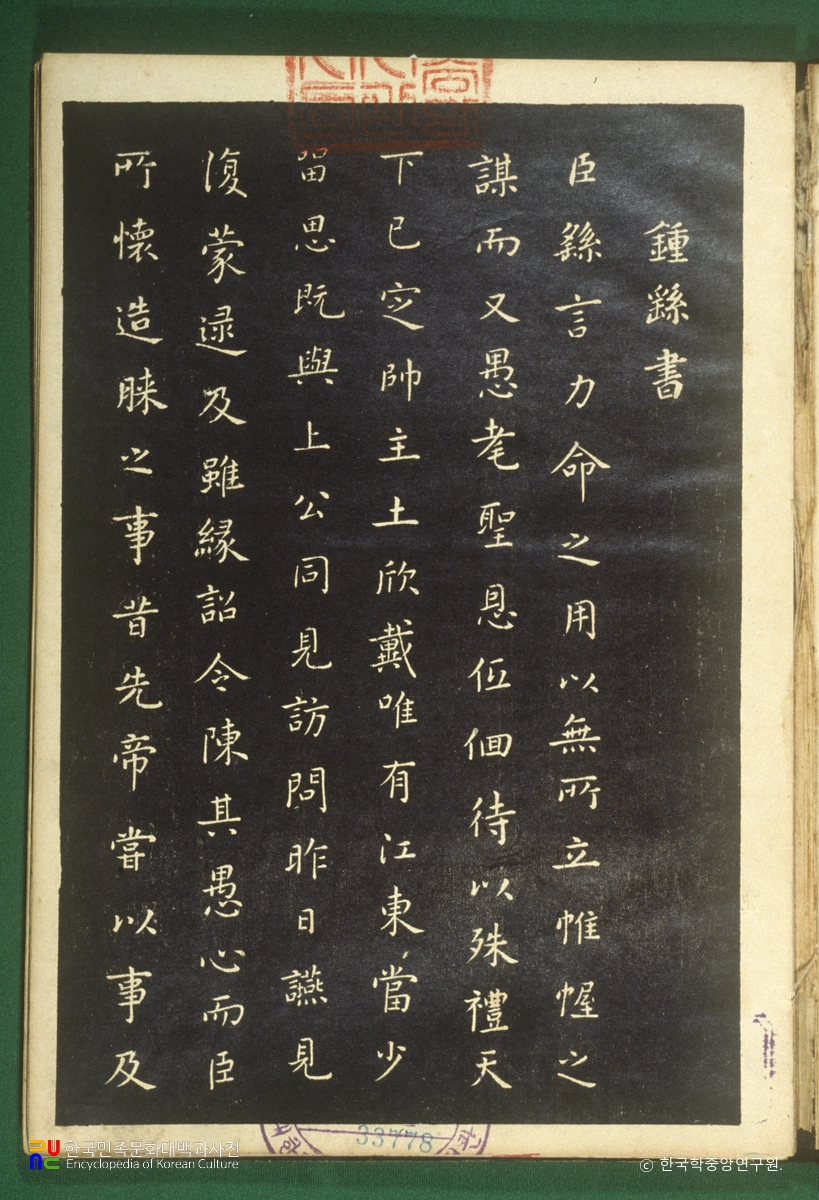 鍾繇書
臣繇言力命之用以無所立帷幄之
謀而又愚耄聖恩低佪待以殊禮天
下已定帥主土欣戴唯有江東當少
留思既與上公同見訪問昨日讌見
復蒙逮及雖縁詔令陳其愚心而臣
所懷造膝之事昔先帝嘗以事及
33778
한국민족문화대백과사전
Encyclopedia of Korean Culture
© 한국학중앙연구원.